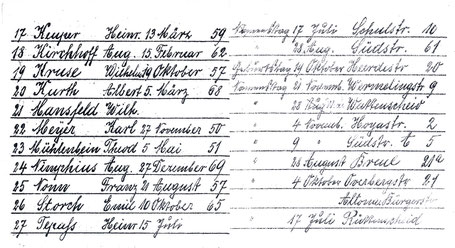 17 Kemper Heinr. 13 März 59 Namenstag 17 Juli Schulstr. 10
18 Kirchhoff Aug. 15. Februar 62 " 28. Aug. Südstr. 61
19 Kruse Wilhelm 29 Oktober 57 Geburtstag 29 Oktober 20
20 Kurth Albert 5. März 68 Namenstag 21 Novemb. 9
21 Mansfeld Wilh. " 28
22 Meyer Karl 27 November 50 " 4 Novemb. Hoyastr. 2
23 Mühlenheim Theod 5 Mai 51 " 9 " Südstr. 5
24 Nimphius Aug. 27 Dezember 69 " 28 August Breul 21a
25 Nonn Franz 21 August 57 " 4 Oktober Overbergstr 27
26 Storch Emil 10 Oktober 65
27 Tepaß Heinr 15 Juli " 17 Juli